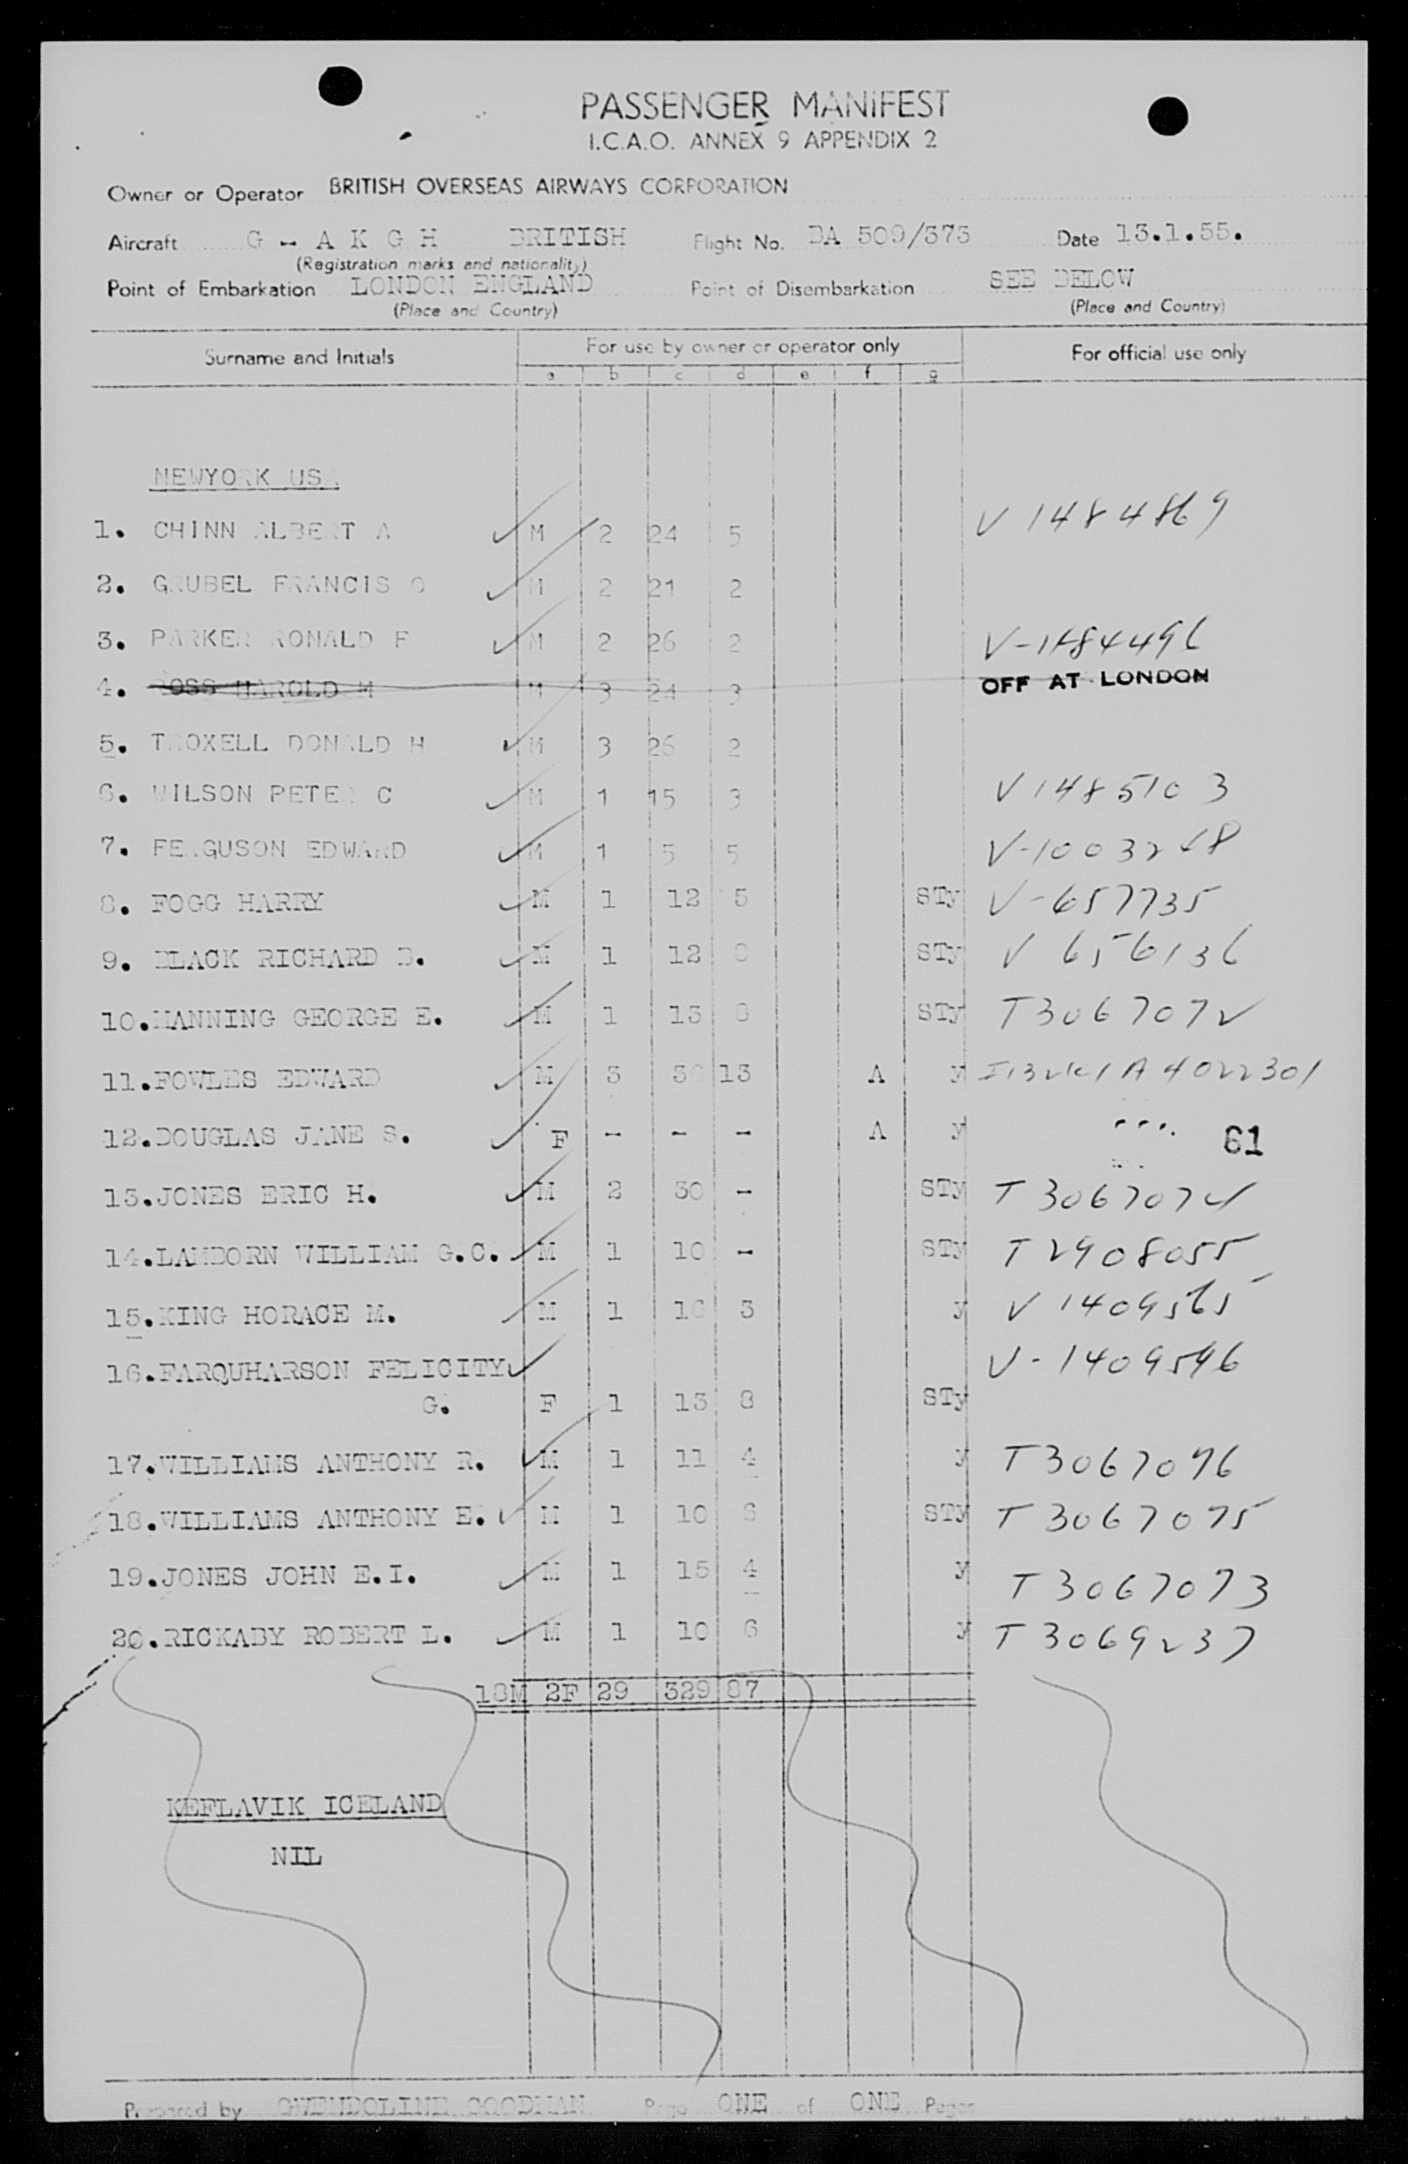 PASSENGER MANIFEST
I.C.A.O. ANNEX 9 APPENDIX 2
Owner or Operator BRITISH OVERSEAS AIRWAYS CORPORATION
Aircraft G - A K G H BRITISH Flight No. BA 509/373 Date 13.1.55.
(Registration marks and nationality)
Point of Embarkation LONDON ENGLAND Point of Disembarkation SEE BELOW
(Place and Country) (Place and Country)
Surname and Initials For use by owner or operator only For official use only
a b c d e f g
NEWYORK USA
1. CHINN ALBERT A M 2 24 5 V 1484869
2. GRUBEL FRANCIS O M 2 21 2
3. PARKER RONALD F M 2 26 2 V-1484496
4. ROSS HAROLD M M 3 24 3 OFF AT LONDON
5. TROXELL DONALD H M 3 26 2
6. WILSON PETER C M 1 15 3 V 1485103
7. FERGUSON EDWARD M 1 5 5 V-1003248
8. FOGG HARRY M 1 12 5 STy V-657735
9. BLACK RICHARD B. M 1 12 8 STy V 656136
10. MANNING GEORGE E. M 1 13 8 STy T3067072
11. FOWLES EDWARD M 3 13 A y A4022301
12. DOUGLAS JANE S. F - - - A y 61
13. JONES ERIC H. M 2 30 - STy T3067074
14. LAMBORN WILLIAM G.C. M 1 10 - STy T2908055
15. KING HORACE M. M 1 16 3 y V 1409565
16. FARQUHARSON FELICITY V-1409596
G. F 1 13 8 STy
17. WILLIAMS ANTHONY R. M 1 11 4 y T3067076
18. WILLIAMS ANTHONY E. M 1 10 6 STy T3067075
19. JONES JOHN E.I. M 1 15 4 y T3067073
20. RICKABY ROBERT L. M 1 10 6 y T3069237
18M 2F 29 329 87
KEFLAVIK ICELAND
NIL
Prepared by GWENDOLINE GOODMAN Page ONE of ONE Pages